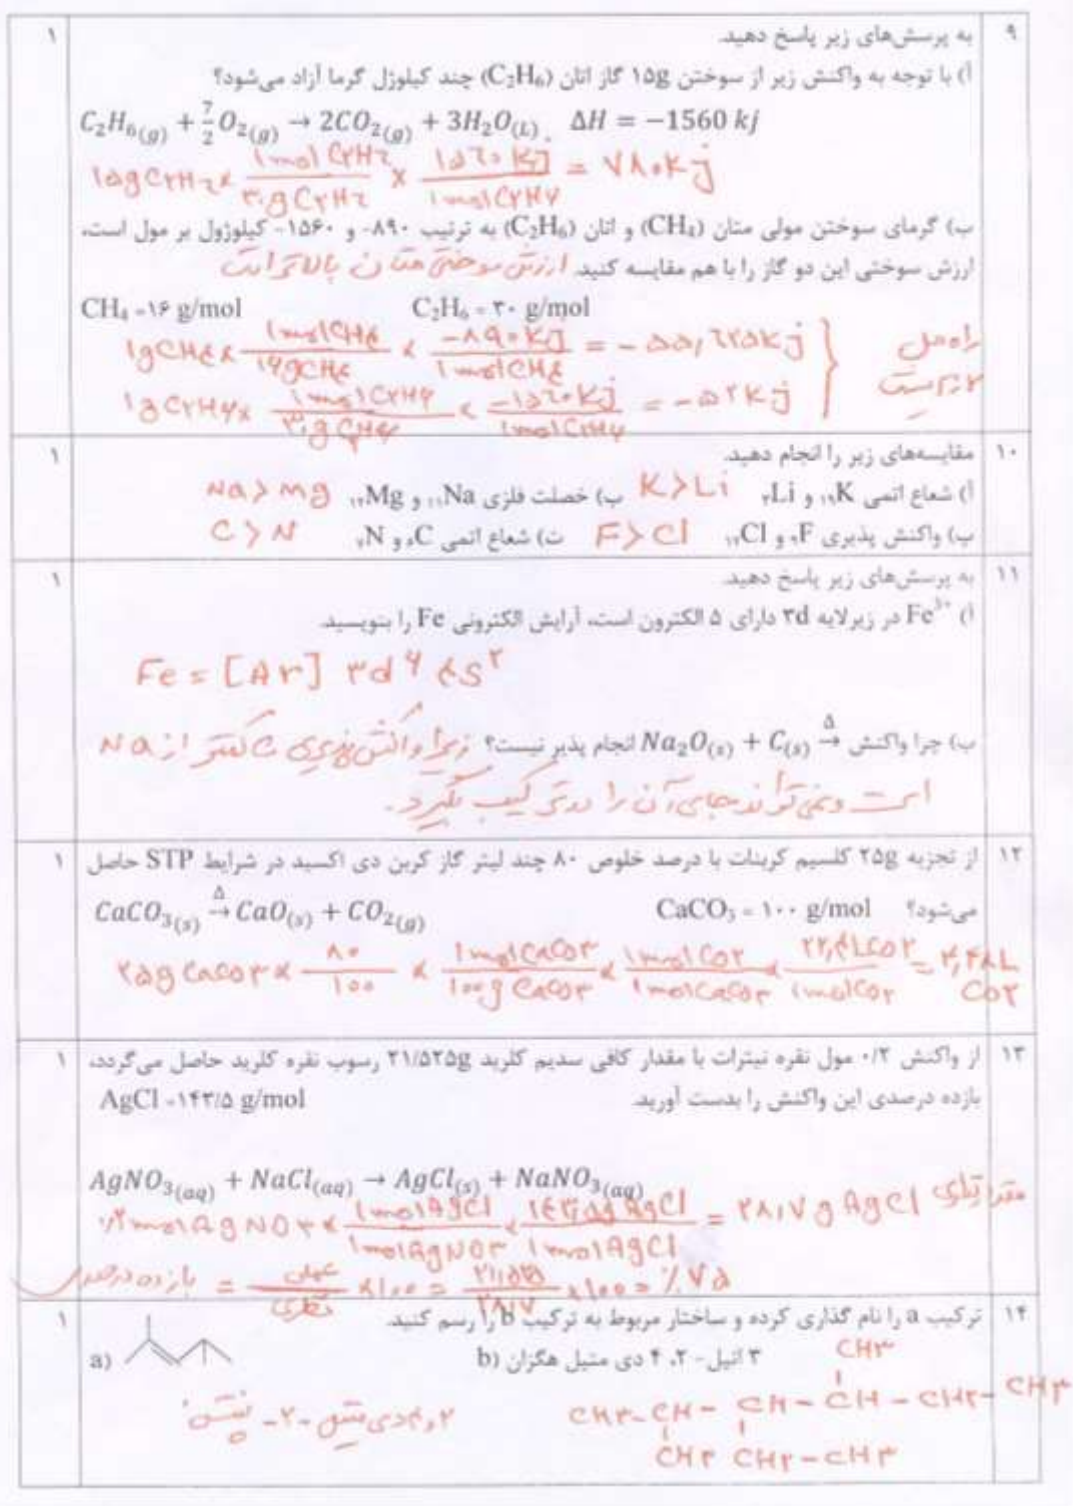 ۹ به پرسش‌های زیر پاسخ دهید. ۱
أ) با توجه به واکنش زیر از سوختن ۱۵g گاز اتان (C₂H₆) چند کیلوژل گرما آزاد می‌شود؟
C₂H₆(g) + 7/2 O₂(g) → 2CO₂(g) + 3H₂O(L) . ΔH = −1560 kj
۱۵g C₂H₆ × ۱mol C₂H₆ / ۳۰g C₂H₆ × ۱۵۶۰ kj / ۱mol C₂H₆ = ۷۸۰ kj
ب) گرمای سوختن مولی متان (CH₄) و اتان (C₂H₆) به ترتیب ۸۹۰- و ۱۵۶۰- کیلوژول بر مول است،
ارزش سوختی این دو گاز را با هم مقایسه کنید. ارزش سوختی متان بالاتر است
CH₄ = ۱۶ g/mol C₂H₆ = ۳۰ g/mol
۱g CH₄ × ۱mol CH₄ / ۱۶g CH₄ × −۸۹۰ kj / ۱mol CH₄ = −۵۵,۶۲۵ kj } راه حل
۱g C₂H₆ × ۱mol C₂H₆ / ۳۰g C₂H₆ × −۱۵۶۰ kj / ۱mol C₂H₆ = −۵۲ kj } لازم نیست
۱۰ مقایسه‌های زیر را انجام دهید. ۱
أ) شعاع اتمی ₁₉K و ₃Li K > Li ب) خصلت فلزی ₁₁Na و ₁₂Mg Na > Mg
پ) واکنش پذیری ₉F و ₁₇Cl F > Cl ت) شعاع اتمی ₆C و ₇N C > N
۱۱ به پرسش‌های زیر پاسخ دهید. ۱
أ) Fe³⁺ در زیرلایه ۳d دارای ۵ الکترون است، آرایش الکترونی Fe را بنویسید.
Fe = [Ar] ۳d⁶ ۴s²
ب) چرا واکنش Na₂O(s) + C(s) →Δ انجام پذیر نیست؟ زیرا واکنش پذیری C کمتر از Na
است و نمی‌تواند جای آن را در ترکیب بگیرد.
۱۲ از تجزیه ۲۵g کلسیم کربنات با درصد خلوص ۸۰ چند لیتر گاز کربن دی اکسید در شرایط STP حاصل ۱
می‌شود؟ CaCO₃ = ۱۰۰ g/mol CaCO₃(s) →Δ CaO(s) + CO₂(g)
۲۵g CaCO₃ × ۸۰ / ۱۰۰ × ۱mol CaCO₃ / ۱۰۰g CaCO₃ × ۱mol CO₂ / ۱mol CaCO₃ × ۲۲,۴ L CO₂ / ۱mol CO₂ = ۴,۴۸ L CO₂
۱۳ از واکنش ۰/۲ مول نقره نیترات با مقدار کافی سدیم کلرید ۲۱/۵۲۵g رسوب نقره کلرید حاصل می‌گردد، ۱
بازده درصدی این واکنش را بدست آورید. AgCl = ۱۴۳/۵ g/mol
AgNO₃(aq) + NaCl(aq) → AgCl(s) + NaNO₃(aq)
۰/۲ mol AgNO₃ × ۱mol AgCl / ۱mol AgNO₃ × ۱۴۳,۵g AgCl / ۱mol AgCl = ۲۸,۷ g AgCl مقدار نظری
بازده درصدی = عملی / نظری × ۱۰۰ = ۲۱,۵۲۵ / ۲۸,۷ × ۱۰۰ = ٪۷۵
۱۴ ترکیب a را نام گذاری کرده و ساختار مربوط به ترکیب b را رسم کنید. ۱
a) b) ۳ اتیل- ۲، ۴ دی متیل هگزان
CH₃
CH₃-CH-CH-CH-CH₂-CH₃
۲و۴دی متیل -۲- پنتن
CH₃ CH₂-CH₃